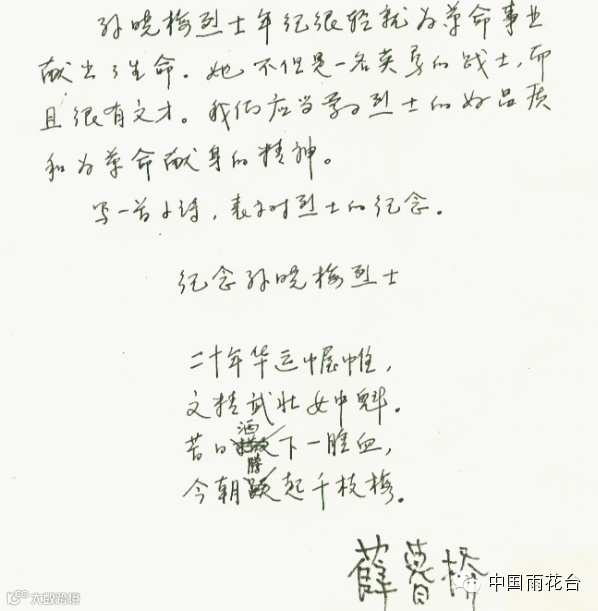 孙晓梅烈士年纪很轻就为革命事业
献出了生命。她不但是一名英勇的战士,而
且很有文才。我们应当学习烈士的好品质
和为革命献身的精神。
写一首小诗,表示对烈士的纪念。
纪念孙晓梅烈士
二十年华运帷幄,
文精武壮女中魁。
昔日洒下一腔血,
今朝腾起千枝梅。
薛暮桥
大数跨境
中国雨花台